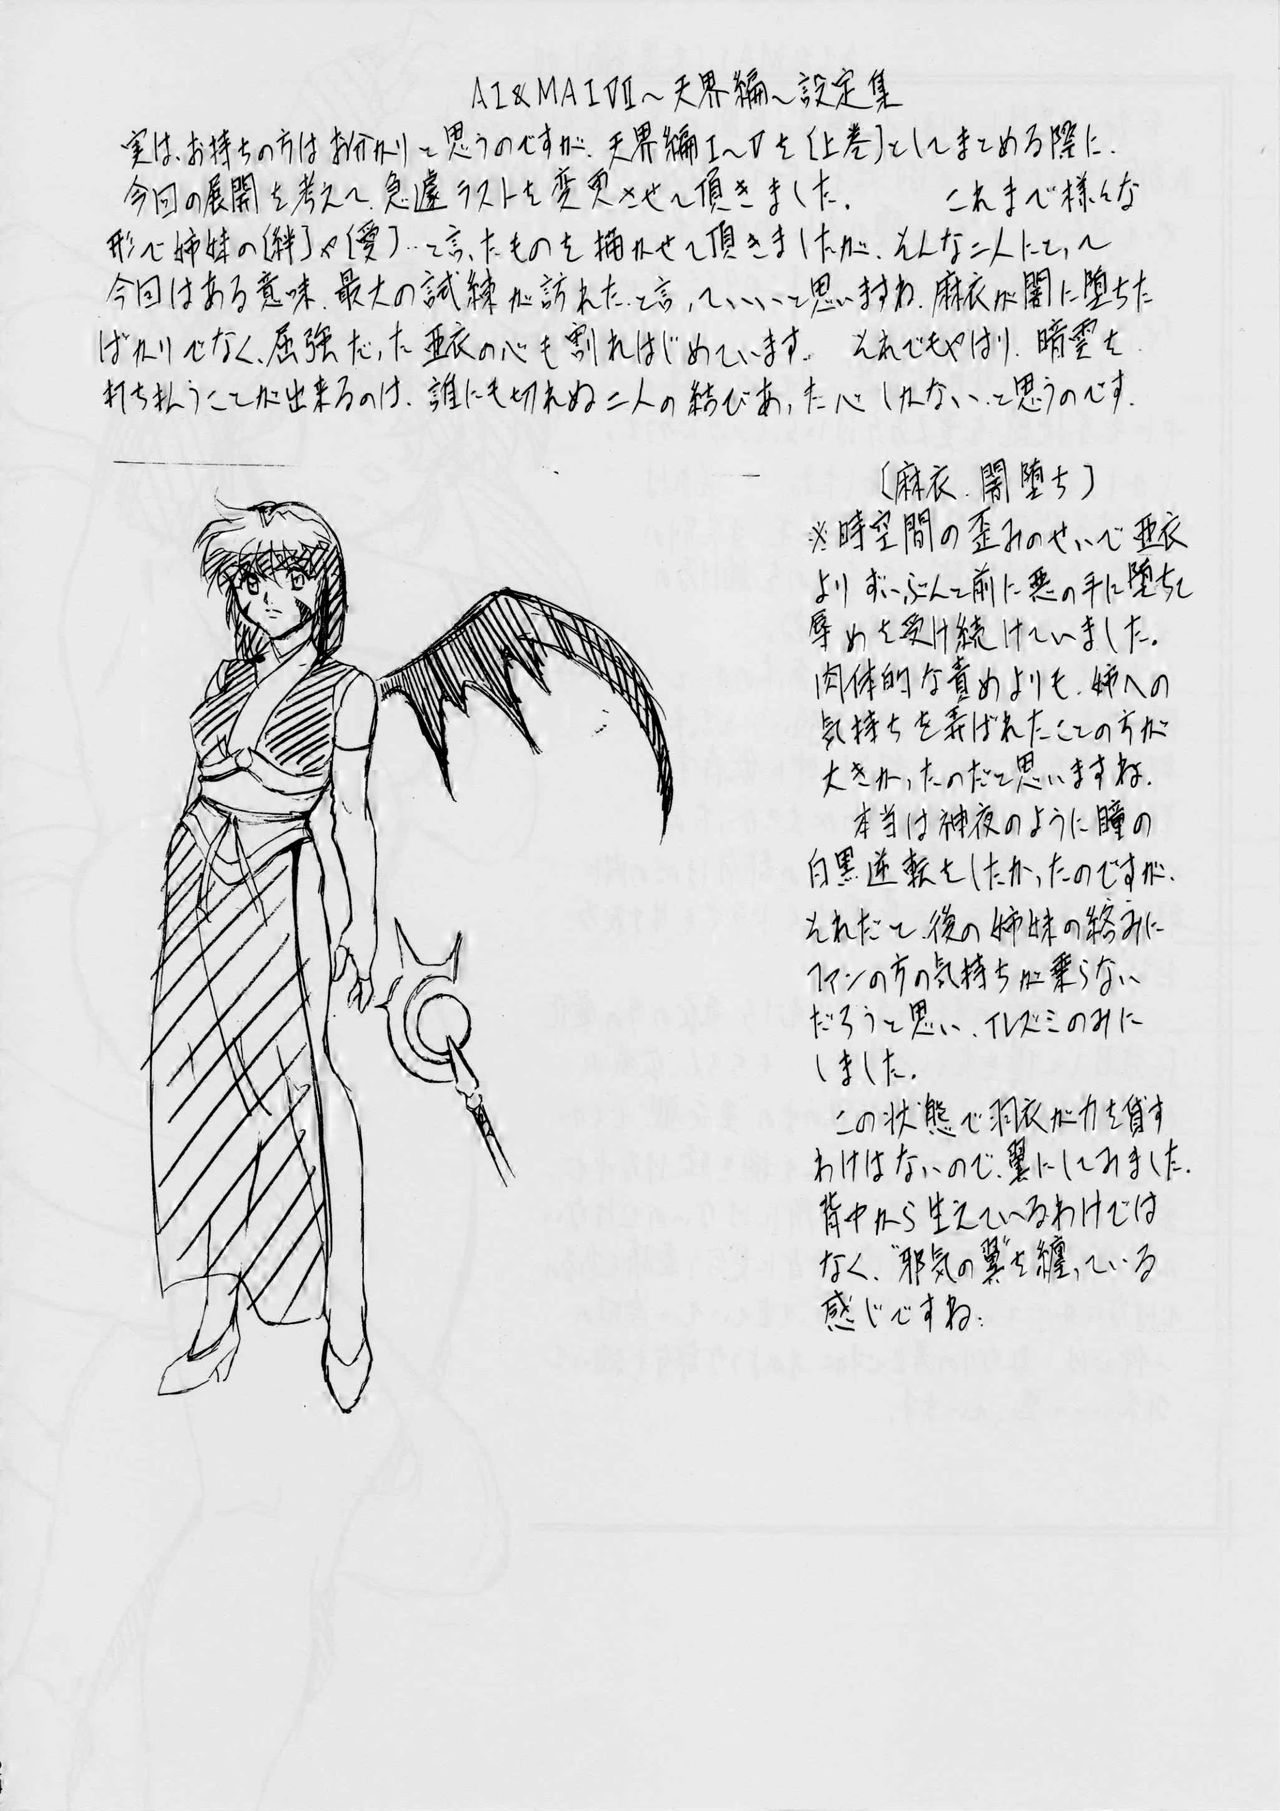 AI&MAI VII〜天界編〜設定集
実は、お持ちの方はお分かりと思うのですが、天界編I〜Vを〔上巻〕としてまとめる際に、
今回の展開を考えて、急遽ラストを変更させて頂きました。 これまで様々な
形で姉妹の〔絆〕や〔愛〕…と言ったものを描かせて頂きましたが、そんな二人にとって
今回はある意味、最大の試練が訪れた…と言っていいと思いますね。麻衣が闇に堕ちた
ばかりでなく、屈強だった亜衣の心も割れはじめています。 それでもやはり、暗雲を
打ち払うことが出来るのは、誰にも切れぬ二人の結びあった心しかない、と思うのです。
〔麻衣・闇堕ち〕
※時空間の歪みのせいで亜衣
よりずいぶんと前に悪の手に堕ちて
辱めを受け続けていました。
肉体的な責めよりも、姉への
気持ちを弄ばれたことの方が
大きかったのだと思いますね。
本当は神夜のように瞳の
白黒逆転をしたかったのですが、
それだと、後の姉妹の絡みに
ファンの方の気持ちが乗らない
だろうと思い、イレズミのみに
しました。
この状態で羽衣が力を貸す
わけはないので、翼にしてみました。
背中から生えているわけでは
なく、"邪気の翼"を纏っている
感じですね。